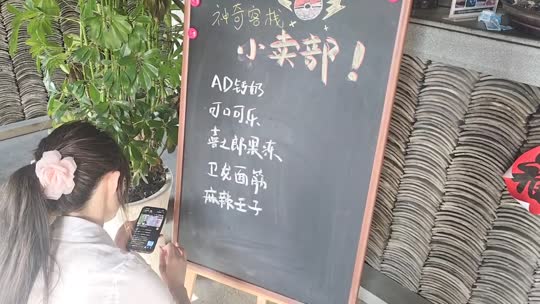 神奇客栈
小卖部!
AD钙奶
可口可乐
喜之郎果冻
卫龙面筋
麻辣王子
福